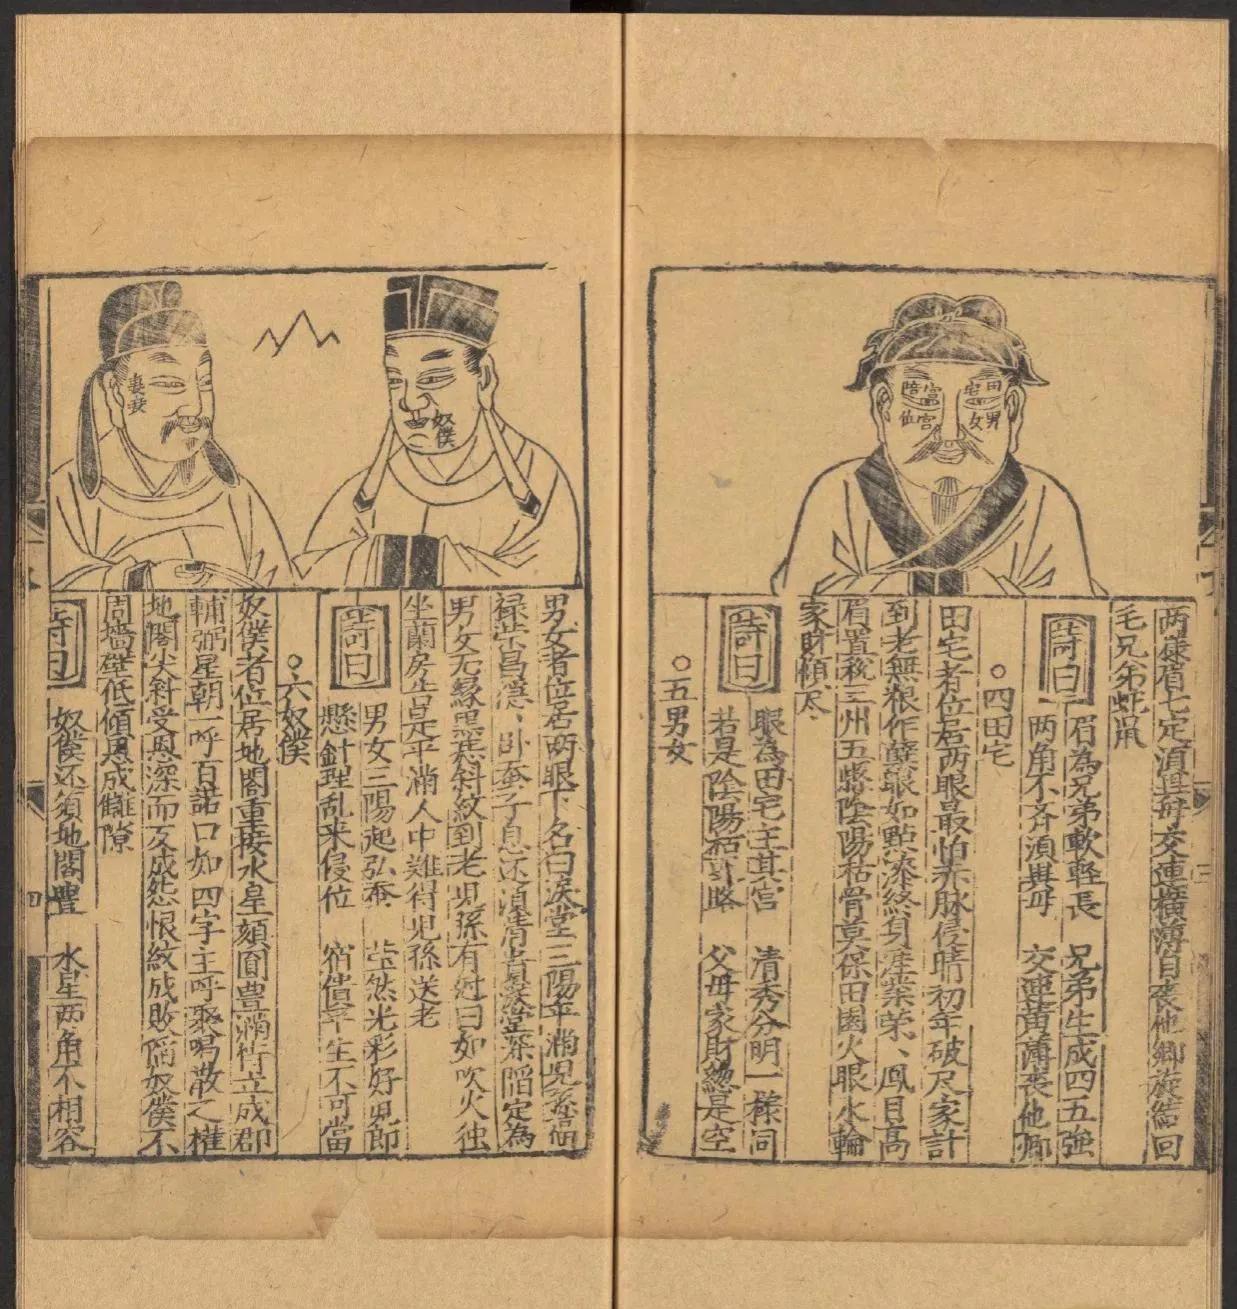 田宅
男女
宮
宮
位
兩様眉七定須異母交連橫薄自喪他鄉旋結回
毛兄弟蛇鼠
詩曰
眉為兄弟軟軽長 兄弟生成四五強
两角不斉須異母 交連黄薄喪他鄉
○四田宅
田宅者位居两眼最怕赤脉侵睛初年破尽家計
到老無粮作蘖眼如點漆終身産業荣、鳳目高
眉置税三州五縣陰陽枯骨莫保田園火眼水輪
家財傾尽
詩曰
眼為田宅主其宮 清秀分明一様同
若是陰陽枯 父母家財緫是空
○五男女
奴僕
妻妾
男女者位居两眼下名曰淚堂三陽平滿児孫福
禄荣昌隐、卧蚕子息还須清貴淚堂深陷定為
男女无縁黒悬斜紋到老児孫有尅口如吹火独
坐蘭房若是平滿人中難得児孫送老
詩曰
男女三陽起 蚕 莹然光彩好児郎
懸針理乱来侵位 宿債平生不可當
○六奴僕
奴僕者位居地閣重接水星頦圓豊滿侍立成郡
輔弼星朝一呼百諾口如四字主呼聚喝散之權
地閣尖斜受恩深而反成怨恨紋成敗陷奴僕不
周墻壁低傾恩成讎隙
詩曰
奴僕还須地閣豐 水星两角不相容
四